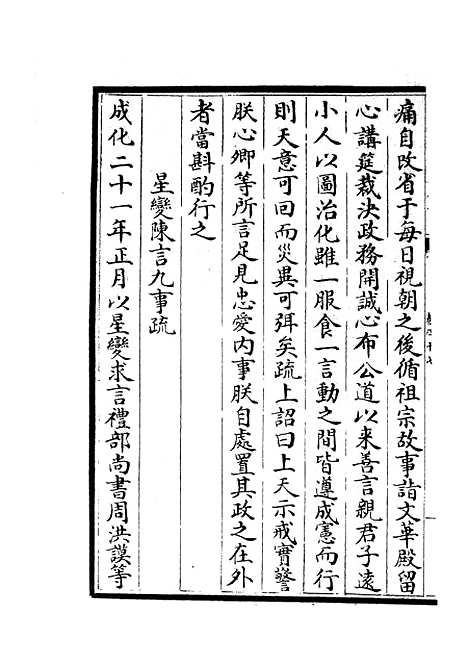 痛自改省于每日視朝之後循祖宗故事詣文華殿留
心講筵裁決政務開誠心布公道以来善言親君子遠
小人以圖治化雖一服食一言動之間皆遵成憲而行
則天意可回而災異可弭矣疏上詔曰上天示戒實警
朕心卿等所言足見忠愛内事朕自處置其政之在外
者當斟酌行之
星變陳言九事疏
成化二十一年正月以星變求言禮部尚書周洪謨等